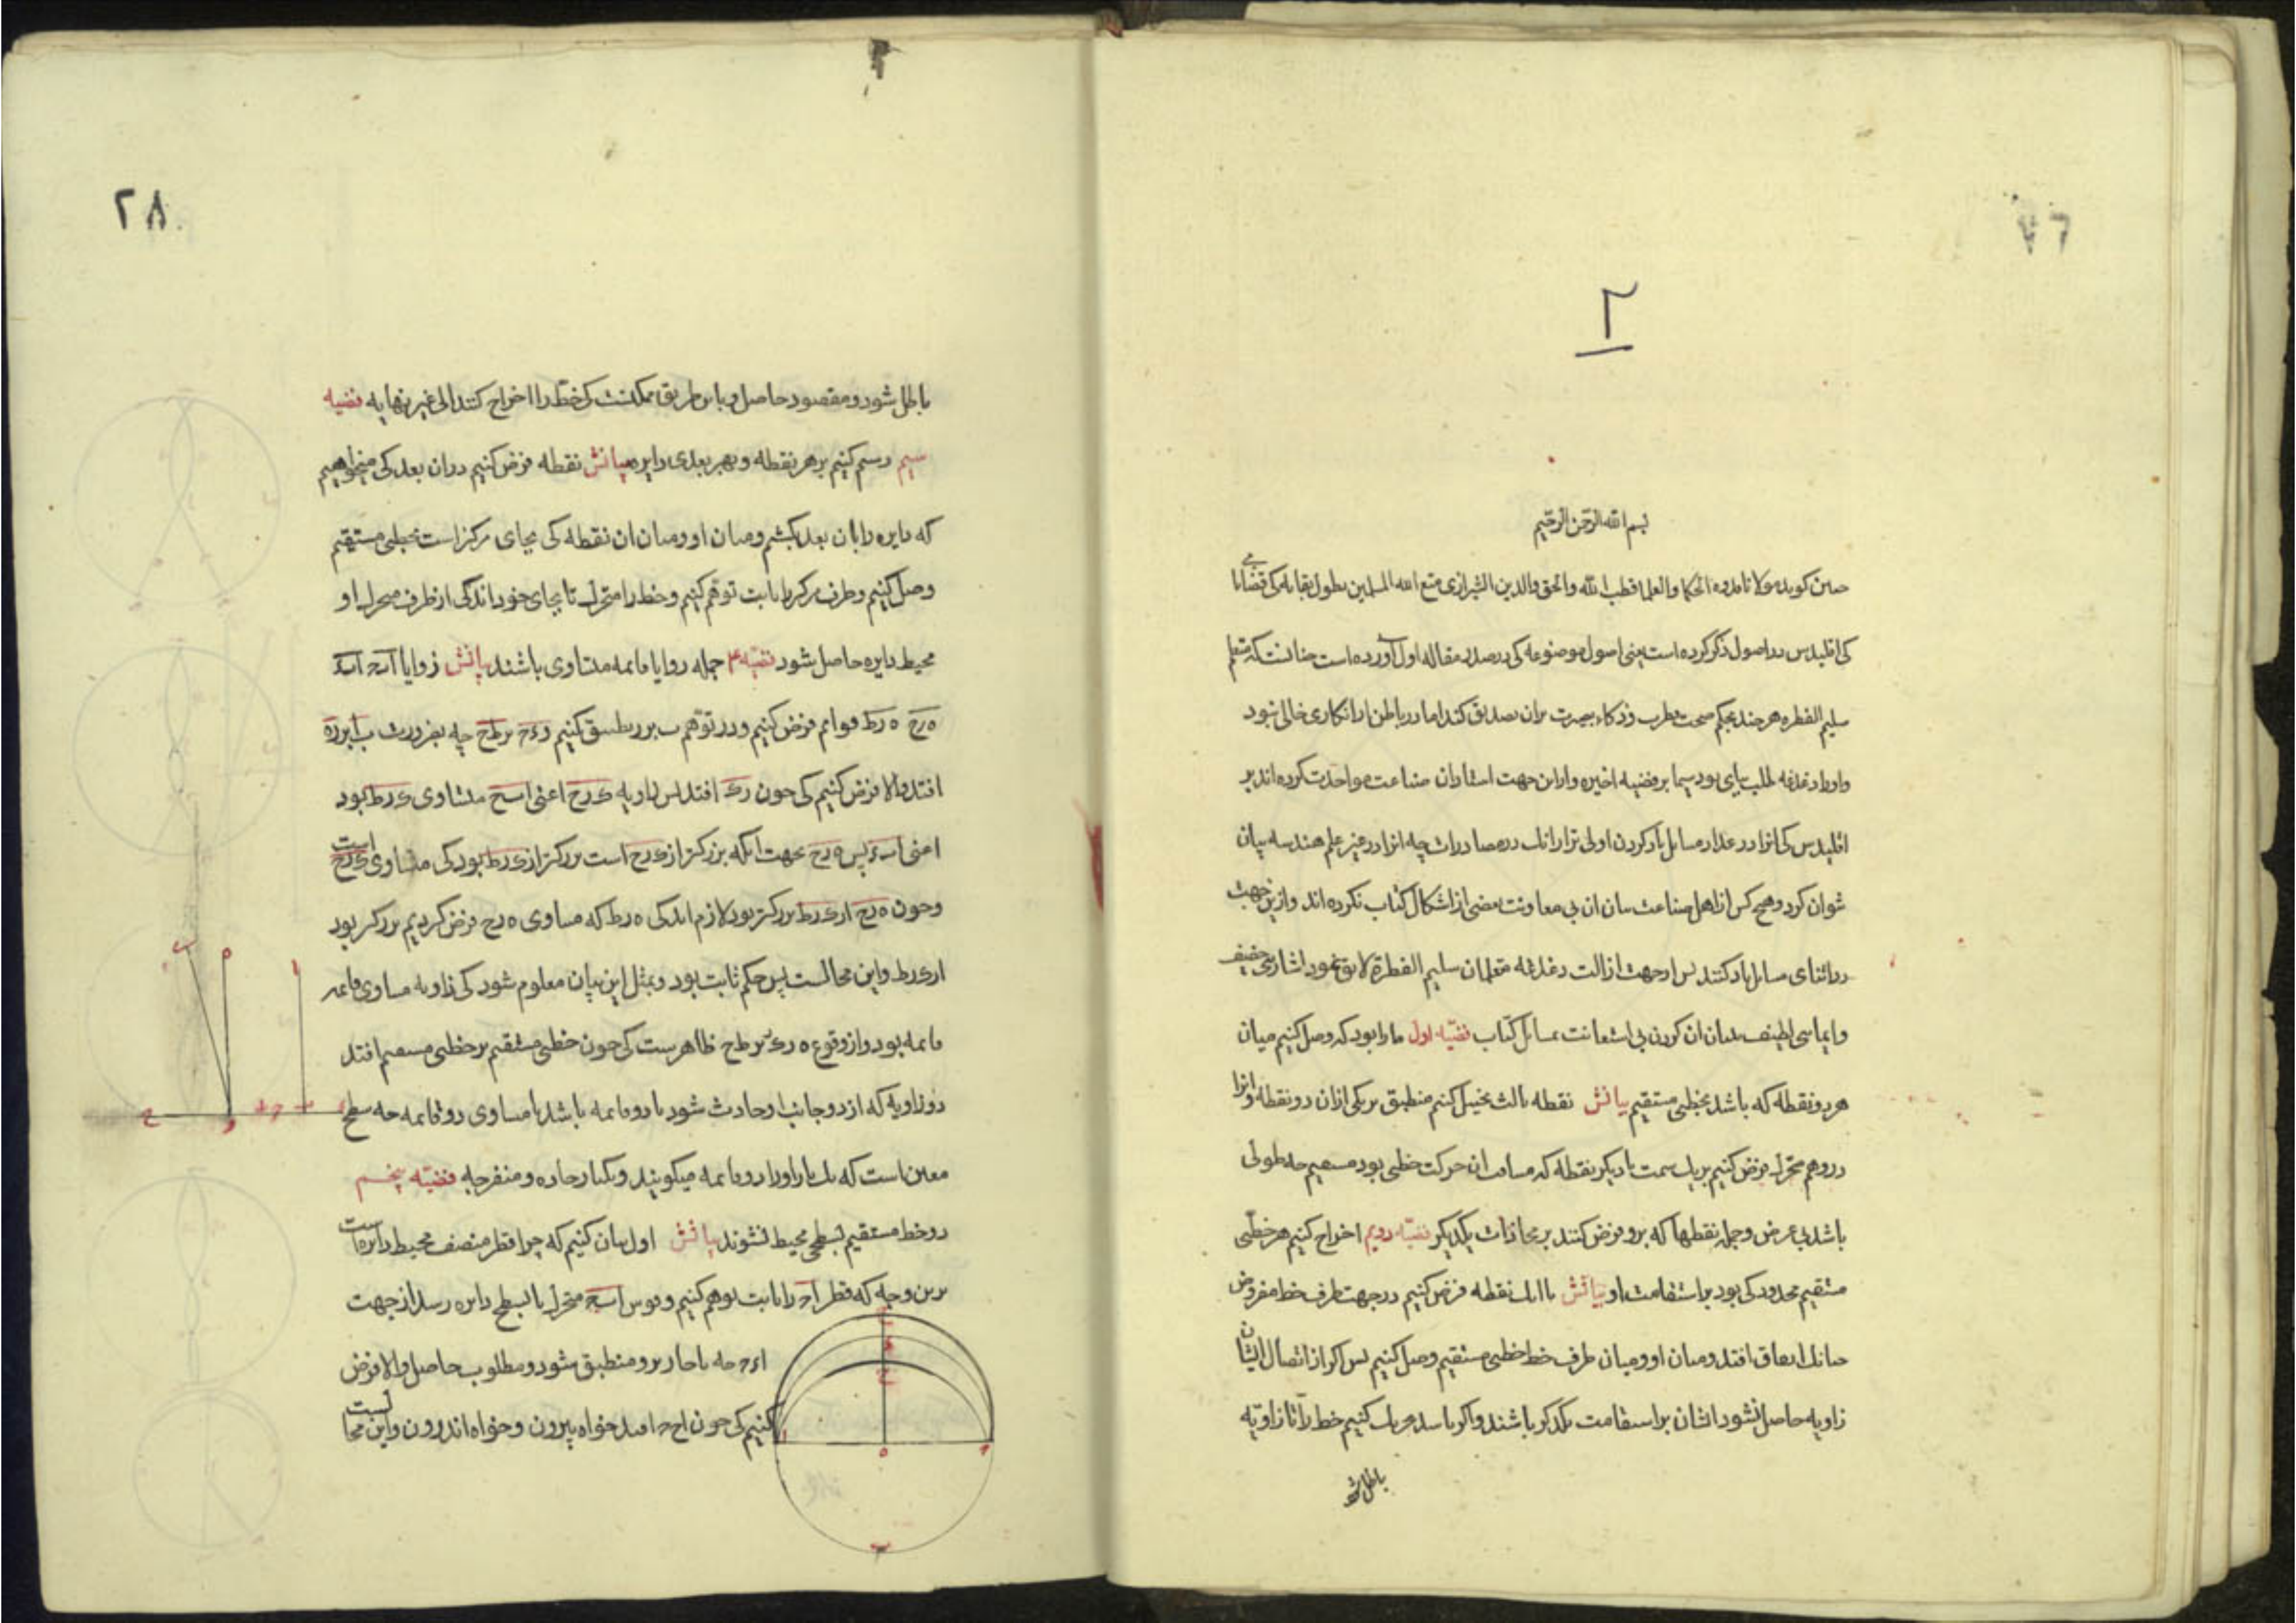 ٢
بسم الله الرحمن الرحیم
چنین کوید مولانا قدوه الحکما والعلما قطب الملة والحق والدین الشیرازی متع الله المسلمین بطول بقایه کی قضایایی
کی اقلیدس در اصول ذکر کرده است یعنی اصول موضوعه کی در صدر مقاله اول آورده است چنانست که متعلم
سلیم الفطره هر چند بحکم صحت فطرت وذکاء بصیرت بران تصدیق کند اما در باطن از انکاری خالی نبود
واورا دغدغه طلب بیانی بود سیما بر قضیه اخیره وازین جهت استادان صناعت مواخذت کرده اند بر
اقلیدس کی انرا در عداد مسایل یاد کردن اولی تر از انک در مصادرات چه انرا در غیر علم هندسه بیان
نتوان کرد وهیچ کس از اهل صناعت بیان ان بی معاونت بعضی از اشکال کتاب نکرده اند وازین جهت
در اثنای مسایل یاد کنند پس از جهت ازالت دغدغه متعلمان سلیم الفطرة لایق نمود اشارتی خفیف
وایمایی لطیف ببیان ان کردن بی استعانت بمسایل کتاب قضیّه اول ما را بود که وصل کنیم میان
هر دو نقطه که باشد بخطی مستقیم بیانش نقطه ثالث تخیل کنیم منطبق بر یکی ازان دو نقطه وانرا
در وهم متحرک فرض کنیم بر یک سمت تا دیگر نقطه که مسافت ان حرکت خطی بود مستقیم چه طولی
باشد بی عرض وجمله نقطها که برو فرض کنند بر محاذات یکدیگر قضیّه دویم اخراج کنیم هر خطی
مستقیم محدود کی بود بر استقامت او بیانش با انک نقطه فرض کنیم در جهت طرف خط مفروض
چنانک اتفاق افتد ومیان او ومیان طرف خط بخطی مستقیم وصل کنیم پس اکر از اتصال ایشان
زاویه حاصل نشود ایشان بر استقامت یکدکر باشند واکر باشد حرکت کنیم خط را تا زاویه
باطل شود
٢٨
باطل شود ومقصود حاصل وباین طریق ممکنست کی خط را اخراج کنند الی غیر نهایه قضیه
سیم رسم کنیم بر هر نقطه وبهر بعدی دایره بیانش نقطه فرض کنیم دران بعد کی میخواهیم
که دایره را بان بعد بکشیم ومیان او ومیان ان نقطه کی بجای مرکز است بخطی مستقیم
وصل کنیم وطرف مرکز را ثابت توهم کنیم وخط را متحرک تا بجای خود اندکی از طرف متحرک او
محیط دایره حاصل شود قضیّه ۴ جمله زوایا قایمه متساوی باشند بیانش زوایا
ه ر ح ه ر ط قوایم فرض کنیم ودر توهم ب بر ر تطبیق کنیم و بر ط ح چه بضرورت
افتد والا فرض کنیم کی چون ر ک افتد پس زاویه ک ر ح اعنی ا ب ح متساوی ک ر ط بود
اعنی پس ه ر ح بجهت انکه بزرکتر از ک ر ح است بزرکتر از ک ر ط بود کی متساوی ک ر ح است
وچون ه ر ح از ک ر ط بزرکتر بود لازم اید کی ه ر ط که مساوی ه ر ح فرض کردیم بزرکتر بود
از ک ر ط واین محالست پس حکم ثابت بود وبمثل این بیان معلوم شود کی زاویه مساوی قایمه
قایمه بود واز وقوع ه ر بر ط ح ظاهرست کی چون خطی مستقیم بر خطی مستقیم افتد
دو زاویه که از دو جانب او حادث شود یا دو قایمه باشد یا مساوی دو قایمه چه سطح
معین است که یک بار اورا دو قایمه میکویند ویکبار حاده ومنفرجه قضیّه پنجم
دو خط مستقیم بسطحی محیط نشوند بیانش اول بیان کنیم که چرا قطر منصف محیط دایره است
برین وجه که قطر را ثابت توهم کنیم وقوس متحرک تا بسطح دایره رسد از جهت
چه ناچار برو منطبق شود ومطلوب حاصل والا فرض
کنیم کی چون افتد خواه بیرون وخواه اندرون واین محالست